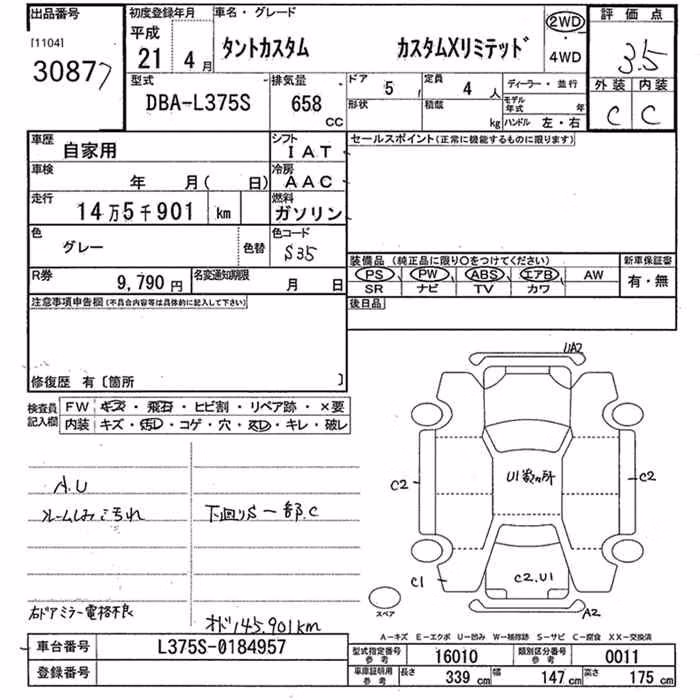 出品番号 初度登録年月 車名・グレード 2WD 評価点
[1104] 平成 タントカスタム カスタムXリミテッド ・ 3.5
30877 21年 4月 4WD
型式 排気量 ドア 5 定員 4人 ディーラー・並行 外装 内装
DBA-L375S 658 CC 形状 積載 kg モデル年式 年 C C
ハンドル 左・右
車歴 自家用 シフト IAT セールスポイント(正常に機能するものに限ります)
車検 年 月( 日) 冷房 AAC
走行 14万5千901 km 燃料 ガソリン
色 グレー 色替 色コード S35
装備品(純正品に限り○をつけてください) 新車保証書
R券 9,790円 名変通知期限 月 日 PS PW ABS エアB AW 有・無
SR ナビ TV カワ
注意事項申告欄(不具合内容等は具体的に記入して下さい) 後日品
修復歴 有〔箇所 〕
検査員記入欄 FW キズ・飛石・ヒビ割・リペア跡・×要
内装 キズ・汚レ・コゲ・穴・スレ・キレ・破レ
UA2
U1数ヵ所
C2 C2
A.U
ルームしみこ汚れ 下回りS一部.C
C1 C2.U1
スペア A2
右ドアミラー電格不良
オド145.901km
A-キズ E-エクボ U-凹み W-補修跡 S-サビ C-腐食 XX-交換済
車台番号 L375S-0184957 型式指定番号 参考 16010 類別区分番号 参考 0011
登録番号 車庫証明用 参考 長さ 339 cm 幅 147 cm 高さ 175 cm